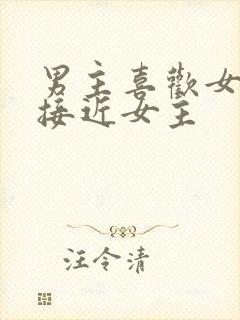 男主喜歡女
接近女主
汪令清